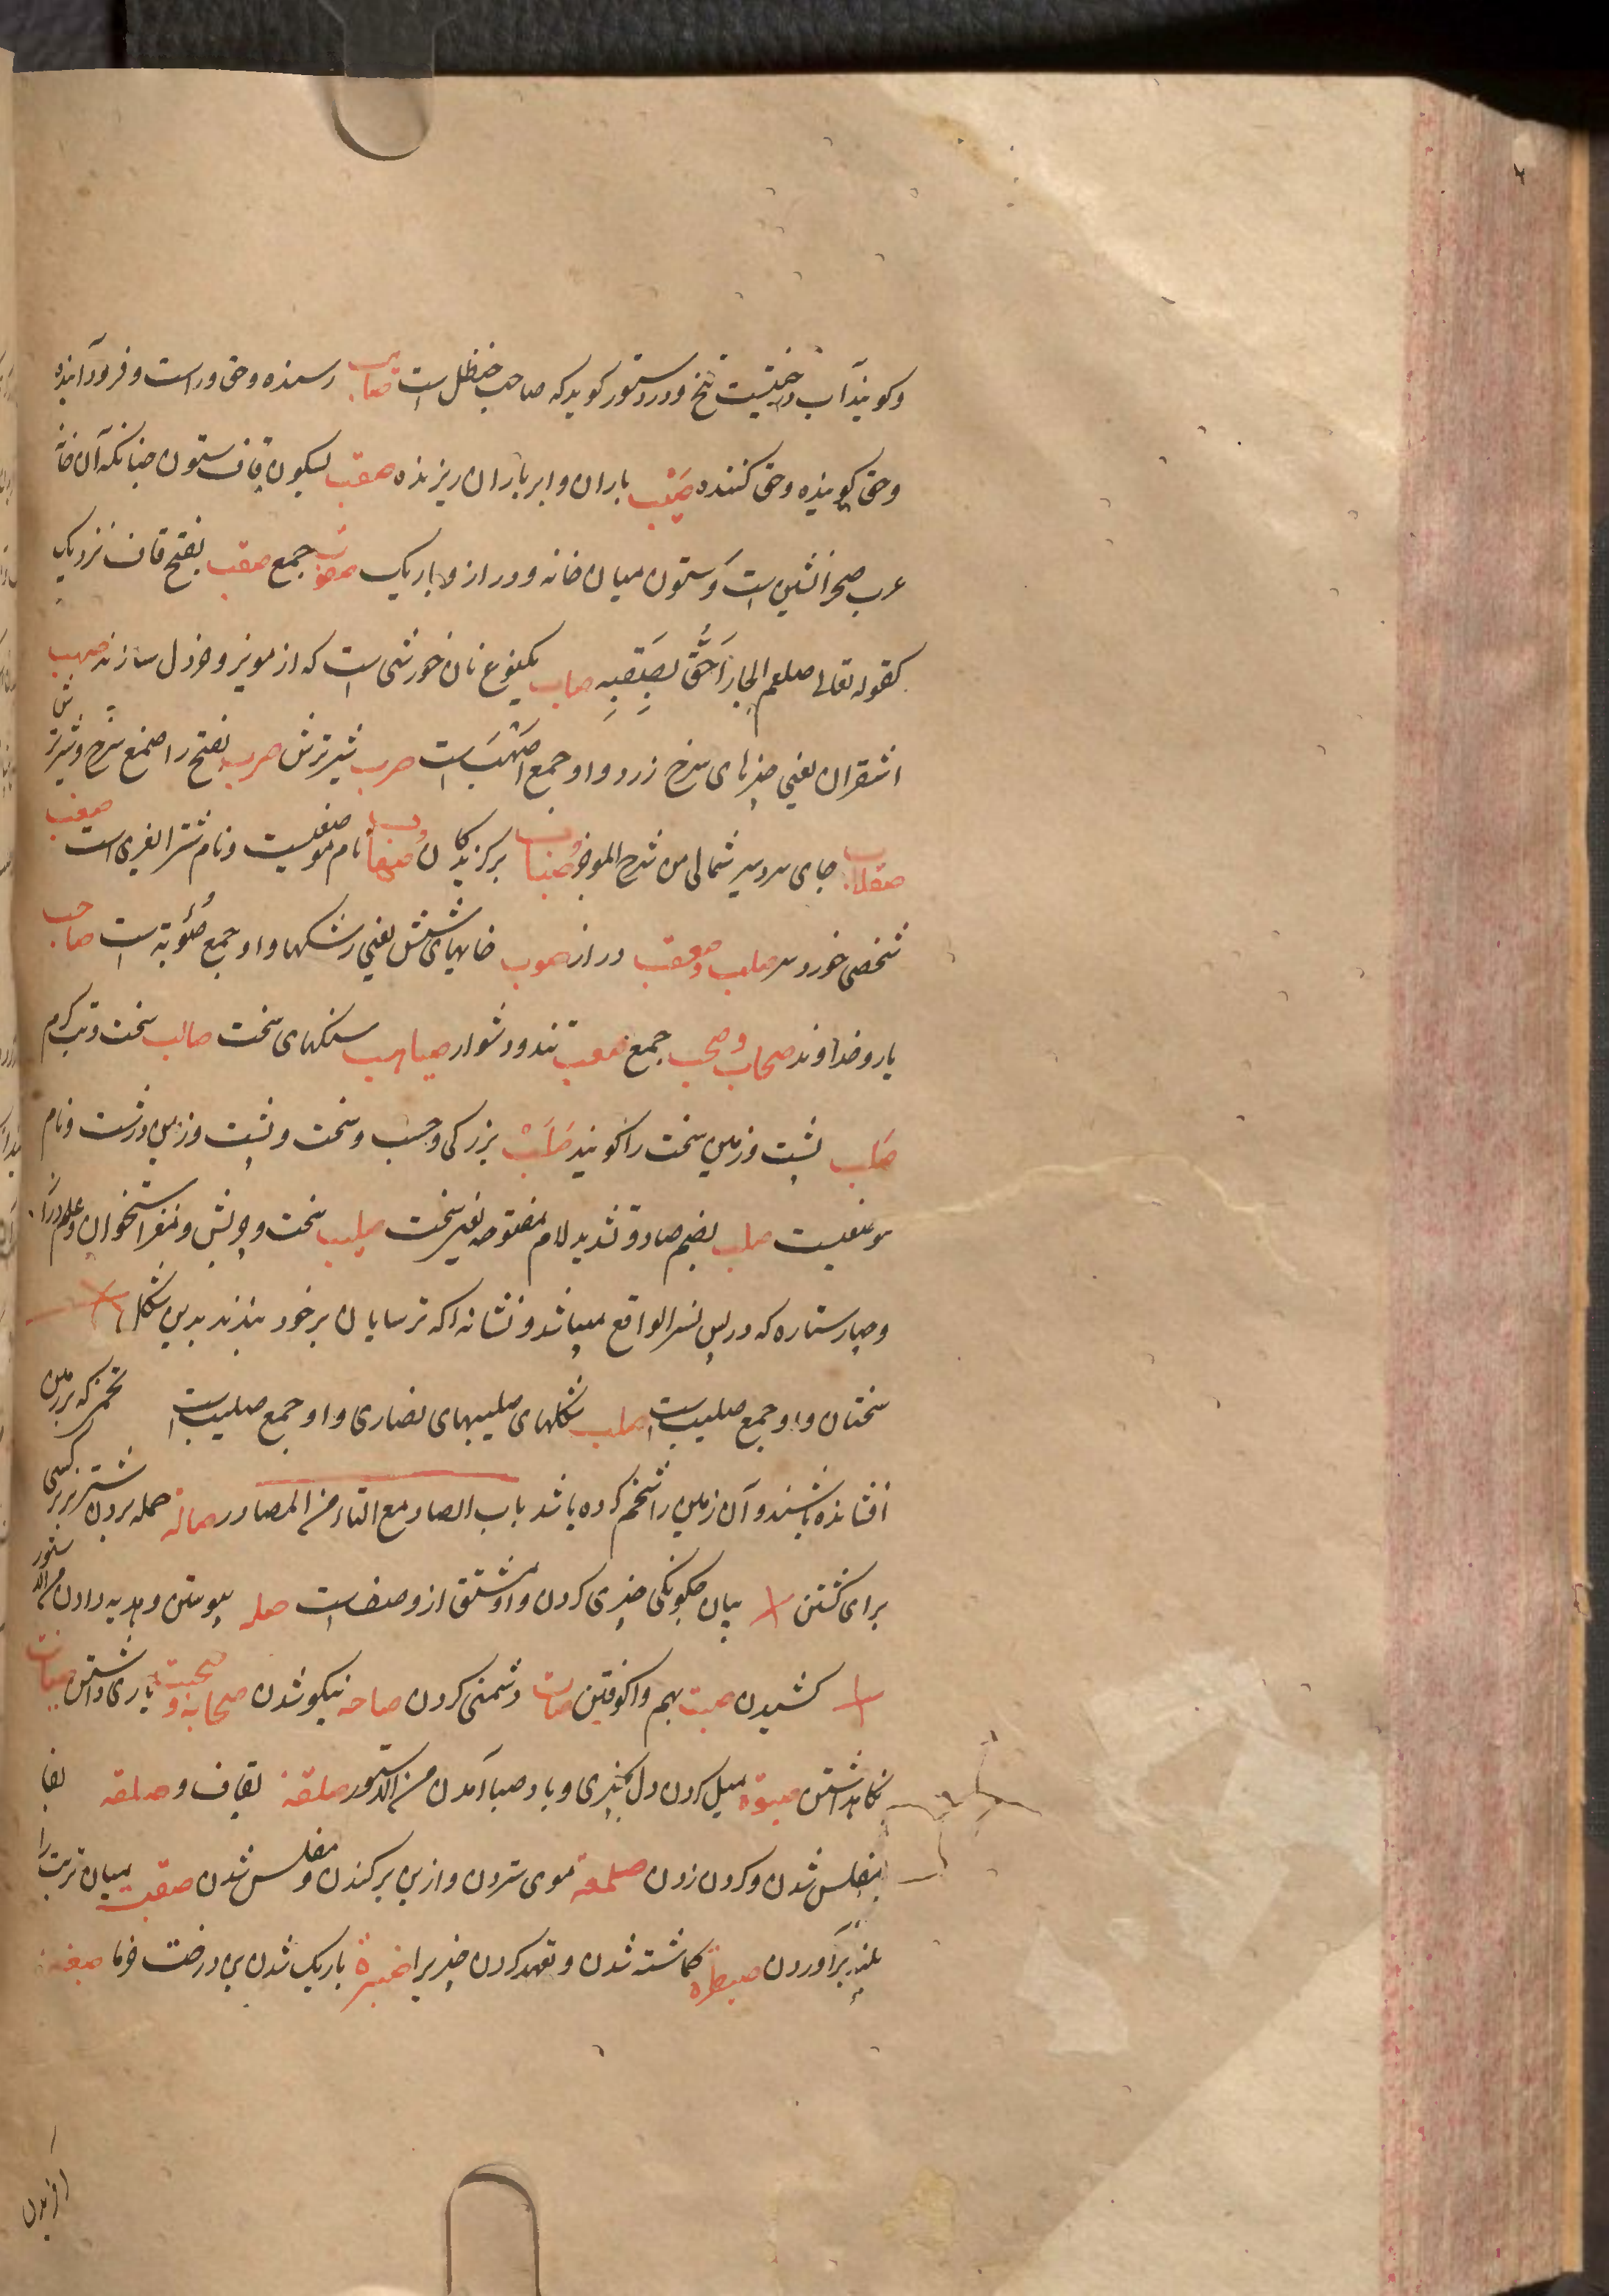 وکویند آب درختیست تلخ و در دستور کوید که صاحب حنظل است صایب رسنده و حق و راست و فرود آینده
و حق کوینده و حق کننده صیّب باران و ابر باران ریزنده صقب بسکون قاف ستون چنانکه آن خانه
عرب صحرانشین است و ستون میان خانه و دراز و باریک جمع صقب بفتح قاف نزدیک
کقوله تعالی صلعم الجار اَحَقُّ بِصَقَبِهِ صاب یکنوع نان خورشی است که از مویز و خردل سازند صهب
اشقران یعنی چیزهای سرخ زرد و او جمع اصهب است صرب شیر ترش صرب بفتح را صمغ سرخ و شیر ترش
صقلاب جای سردسیر شمالی من شرح الموجز برکزیدکان نام موضعیست و نام شتر الغری است صعنب
شخصی خورد سر صلهب و صقعب دراز صوب خایهای شپش یعنی رشکها و او جمع صُوبَة است صاحب
یار و خداوند صحاب و صحب جمع صعب تند و دشوار صیاهب سنکهای سخت صالب سخت و تب کرم
صَلب پشت و زمین سخت را کویند صُلْب بزرکی و حسب و سخت و پشت و زمین درشت و نام
موضعیست صلب بضم صاد و تشدید لام مفتوحه نیز سخت صلیب سخت و چربش و مغز استخوان و علم ترسا
و چهار ستاره که در پس نسر الواقع میباشد و نشانه که ترسایان بر خود بندند بدین شکل
سختان و او جمع صلیب است صلب شکلهای صلیبهای نصاری و او جمع صلیب است تخمی که بر زمین
افشانده باشند و آن زمین را شخم کرده باشد باب الصاد مع التاء من المصادر صالة حمله بردن شتر نر بر کسی
برای کشتن بیان چکونکی چیزی کردن و او مشتق از وصف است صله پیوستن و هدیه دادن من الدستور
کشیدن صت بهم واکوفتن دشمنی کردن صاحه نیکو شدن صحابة و صحبت یاری داشتن صیانت
نکاهداشتن صبوة میل کردن دل بچیزی و باد صبا آمدن من الدستور صلقة بقاف و صلفه بفا
مفلس شدن و کردن زدن صلمعة موی ستردن و از بن برکندن و مفلس شدن میان تربت را
بلند برآوردن صیطرة کماشته شدن و تعهد کردن چیزیرا صنبرة باریک شدن بن درخت خرما